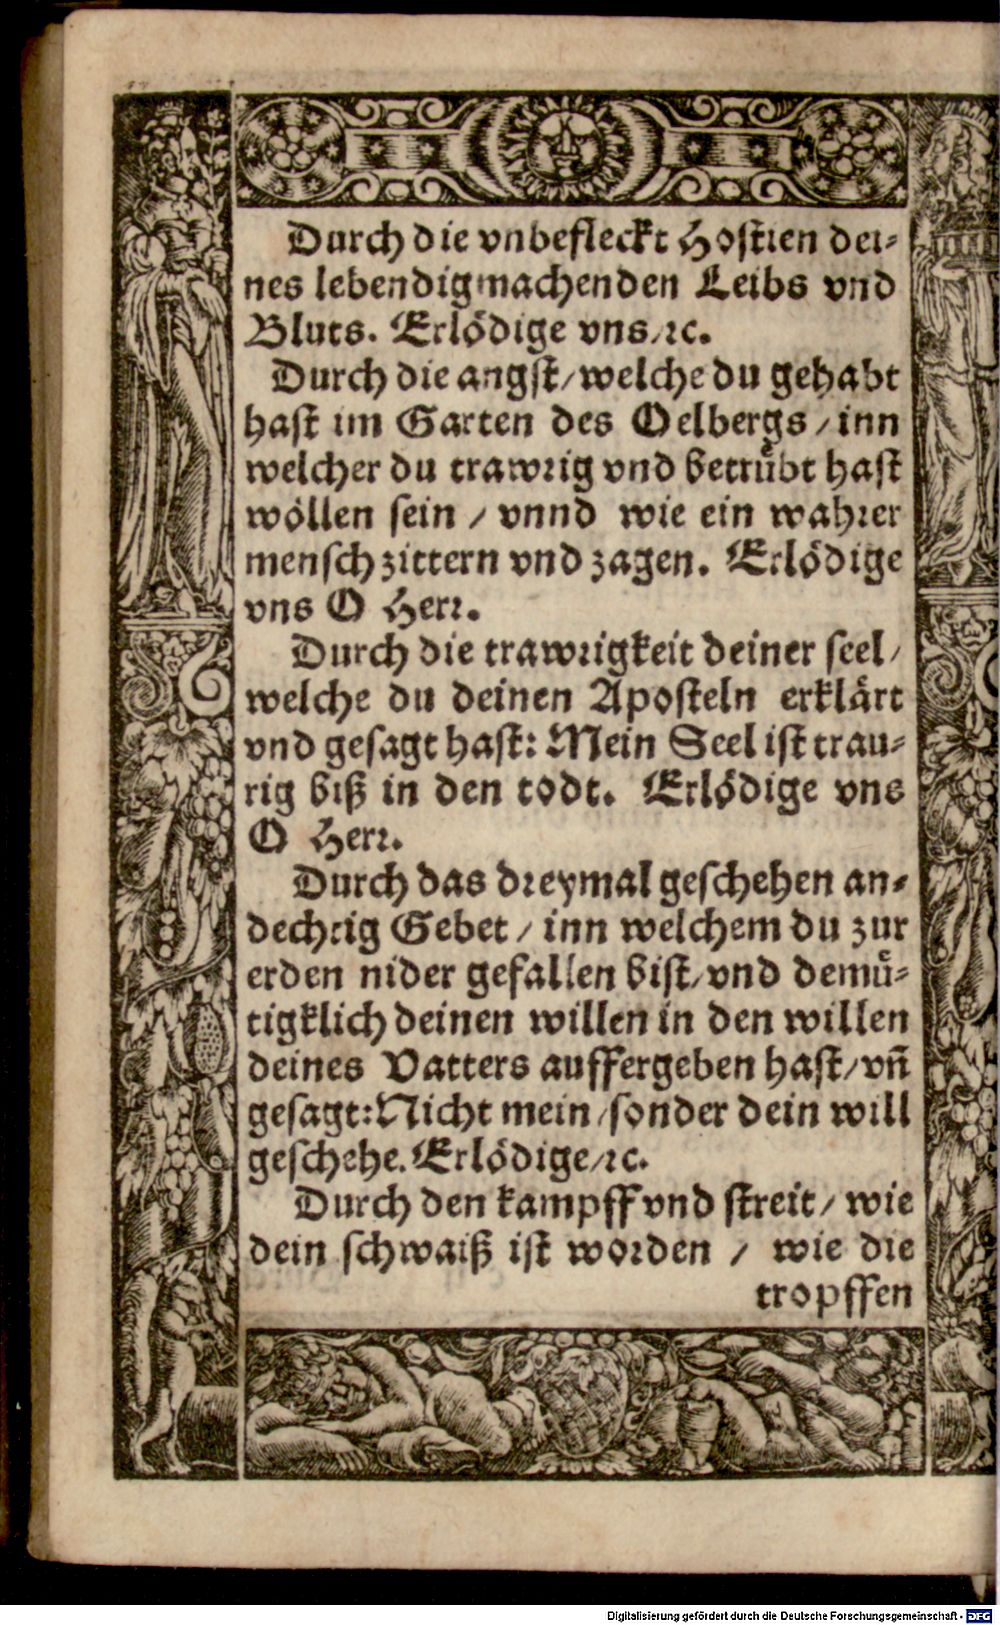 Durch die vnbefleckt Hostien dei⸗
nes lebendigmachenden Leibs vnd
Bluts. Erlödige vns / ꝛc.
Durch die angst / welche du gehabt
hast im Garten des Oelbergs / inn
welcher du trawrig vnd betruͤbt hast
wöllen sein / vnnd wie ein wahrer
mensch zittern vnd zagen. Erlödige
vns O Herr.
Durch die trawrigkeit deiner seel /
welche du deinen Aposteln erklärt
vnd gesagt hast: Mein Seel ist trau⸗
rig biß in den todt. Erlödige vns
O Herr.
Durch das dreymal geschehen an⸗
dechtig Gebet / inn welchem du zur
erden nider gefallen bist / vnd demuͤ⸗
tigklich deinen willen in den willen
deines Vatters auffergeben hast / vn̄
gesagt: Nicht mein / sonder dein will
geschehe. Erlödige / ꝛc.
Durch den kampff vnd streit / wie
dein schwaiß ist worden / wie die
tropffen
Digitalisierung gefördert durch die Deutsche Forschungsgemeinschaft - DFG